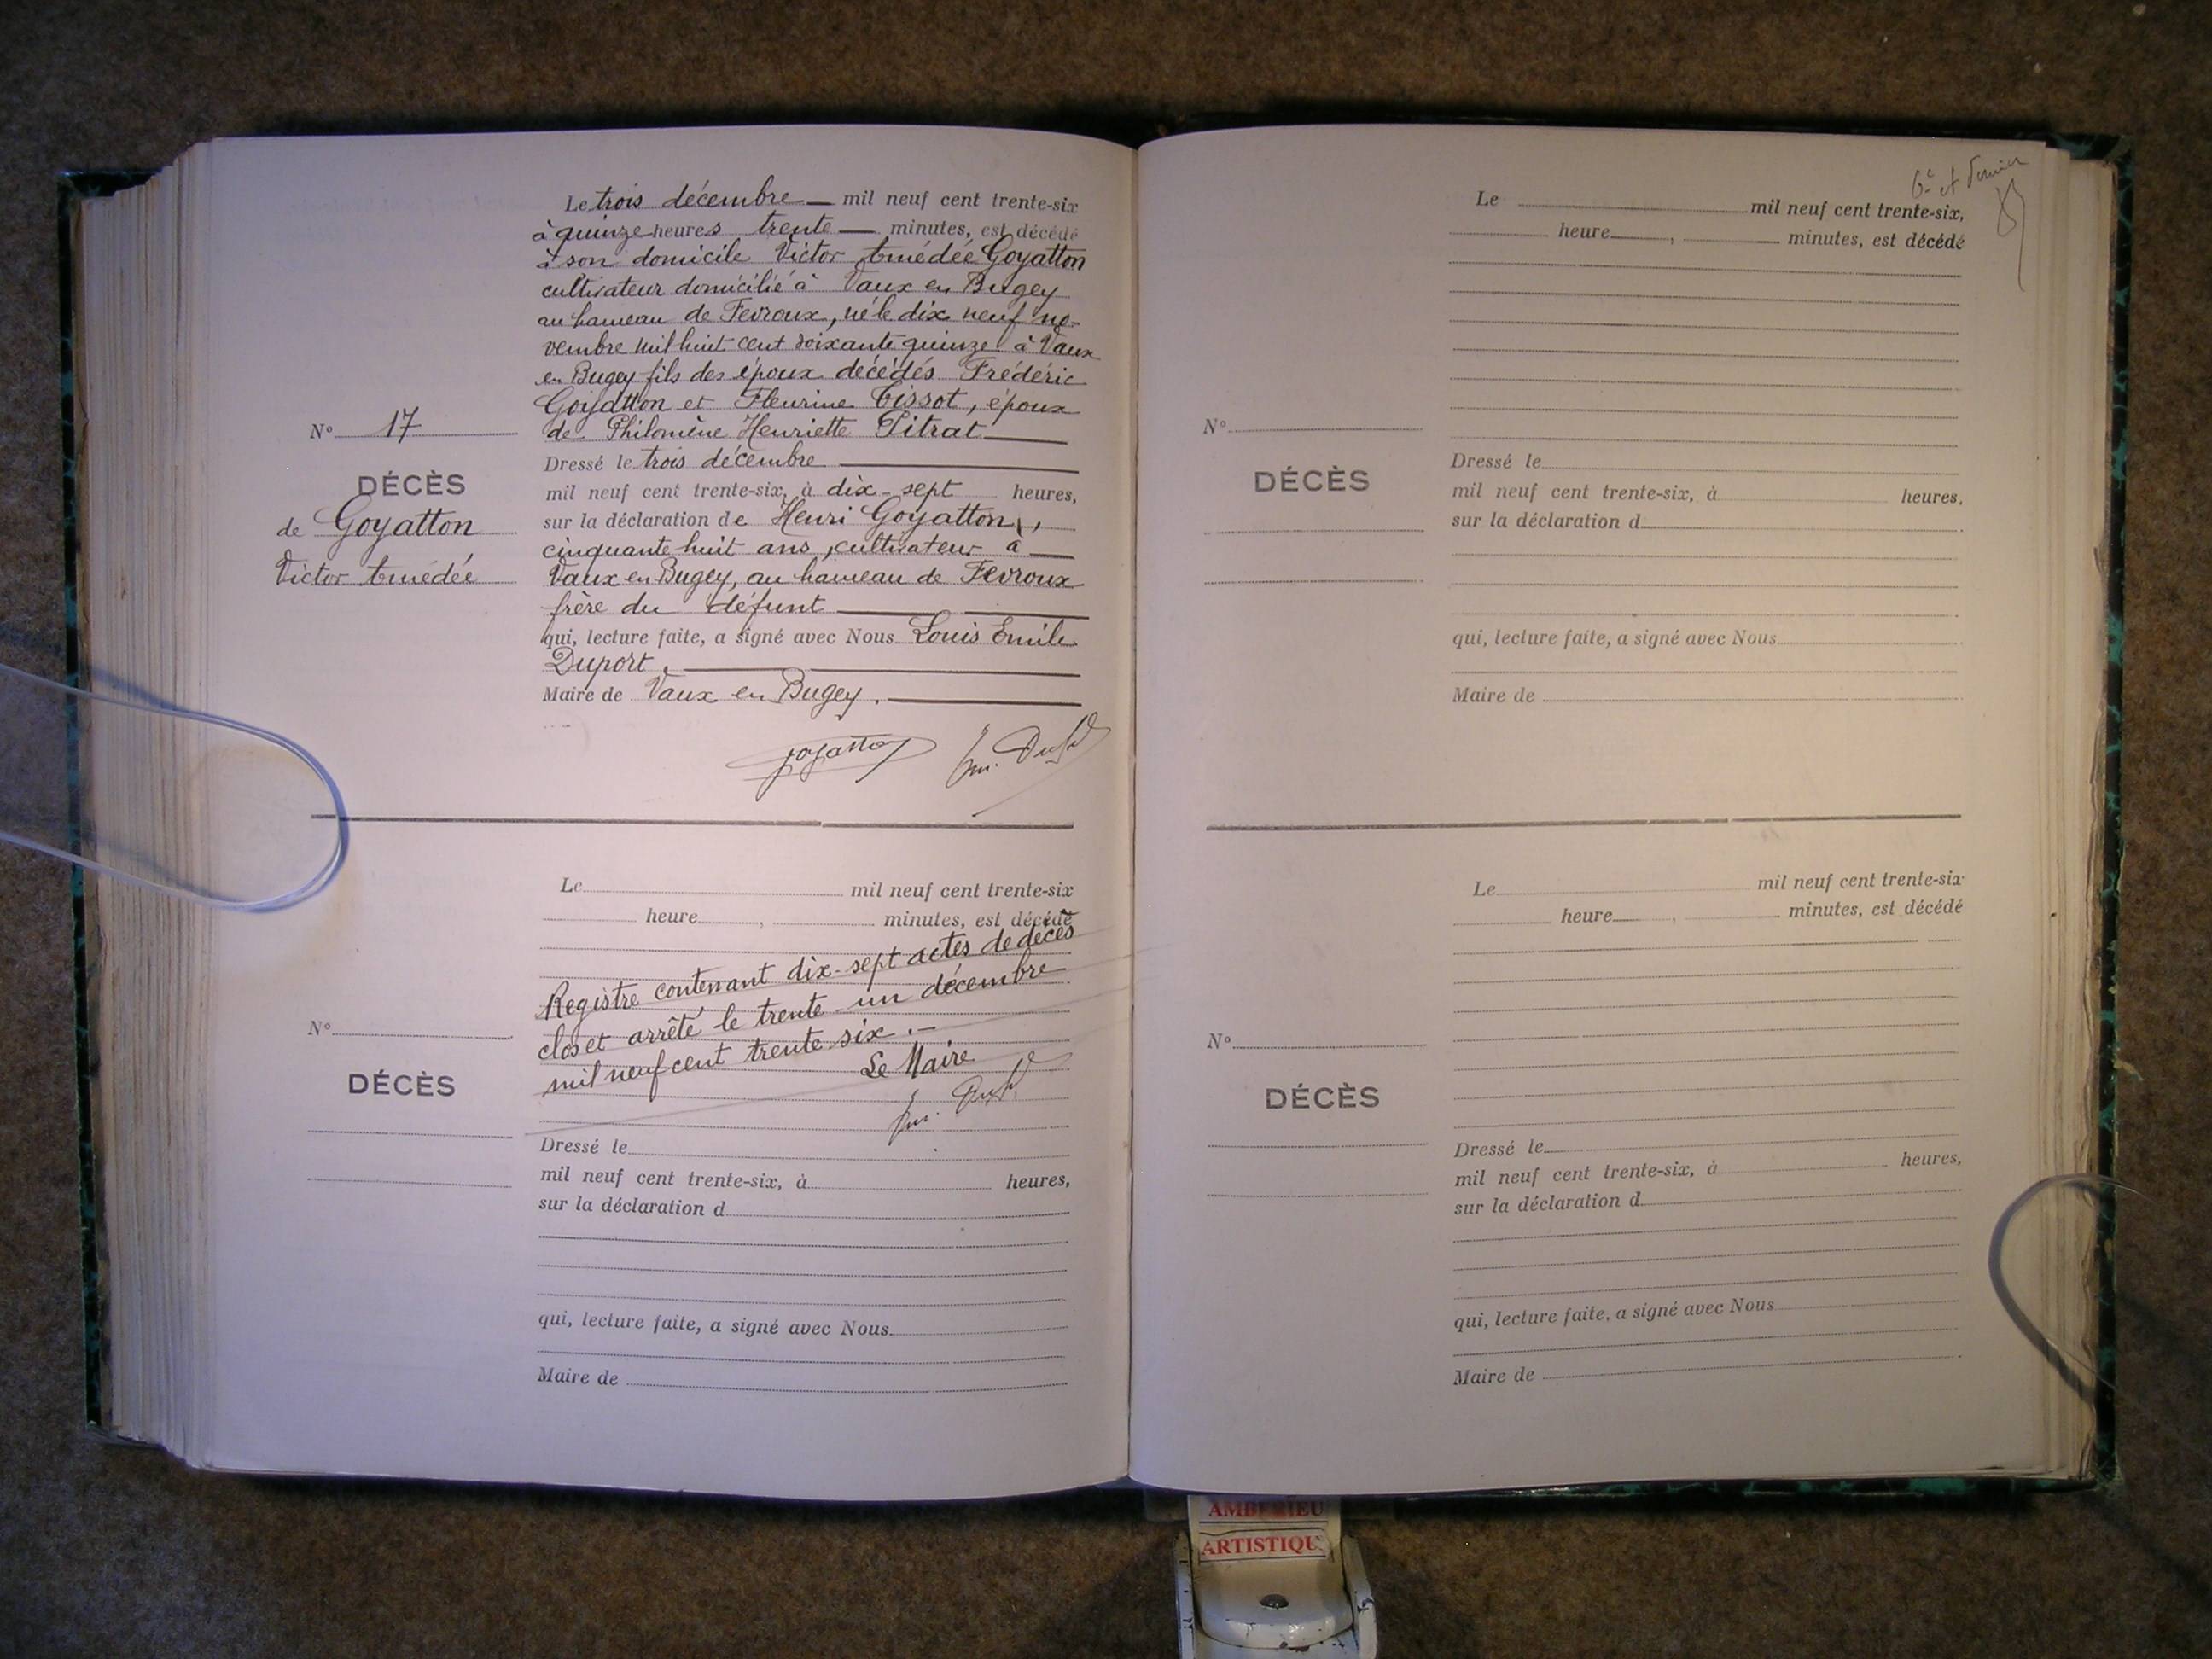 Le trois décembre mil neuf cent trente-six
à quinze heures trente minutes, est décédé
à son domicile Victor Amédée Goyatton
cultivateur domicilié à Vaux en Bugey
au hameau de Fevroux, né le dix neuf no-
vembre mil huit cent soixante quinze à Vaux
en Bugey fils des époux décédés Frédéric
Goyatton et Fleurine Tissot, époux
de Philomène Henriette Pitrat
Dressé le trois décembre
mil neuf cent trente-six, à dix-sept heures,
sur la déclaration de Henri Goyatton,
cinquante huit ans, cultivateur à
Vaux en Bugey, au hameau de Fevroux
frère du défunt
qui, lecture faite, a signé avec Nous Louis Emile
Duport.
Maire de Vaux en Bugey.
Nº 17
DÉCÈS
de Goyatton
Victor Amédée
goyatton
Le mil neuf cent trente-six
heure , minutes, est décédé
Registre contenant dix-sept actes de décès
clos et arrêté le trente un décembre
mil neuf cent trente six.-
Le Maire
Nº
DÉCÈS
Dressé le
mil neuf cent trente-six, à heures,
sur la déclaration d
qui, lecture faite, a signé avec Nous
Maire de
6e et dernier
Le mil neuf cent trente-six,
heure , minutes, est décédé
Nº
DÉCÈS
Dressé le
mil neuf cent trente-six, à heures,
sur la déclaration d
qui, lecture faite, a signé avec Nous
Maire de
Le mil neuf cent trente-six
heure , minutes, est décédé
Nº
DÉCÈS
Dressé le
mil neuf cent trente-six, à heures,
sur la déclaration d
qui, lecture faite, a signé avec Nous
Maire de
AMBERIEU
ARTISTIQU